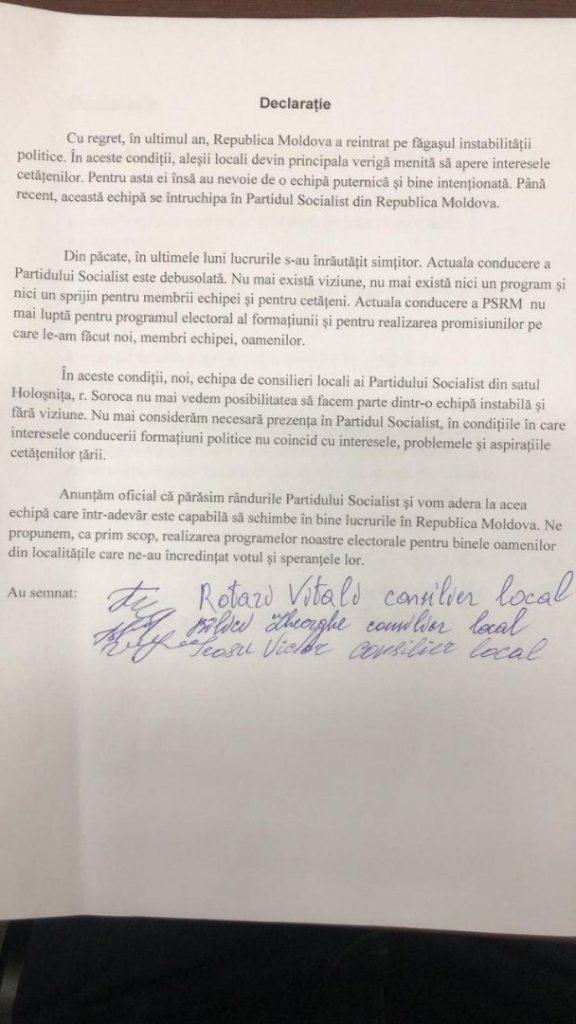 Declarație
Cu regret, în ultimul an, Republica Moldova a reintrat pe făgașul instabilității
politice. În aceste condiții, aleșii locali devin principala verigă menită să apere interesele
cetățenilor. Pentru asta ei însă au nevoie de o echipă puternică și bine intenționată. Până
recent, această echipă se întruchipa în Partidul Socialist din Republica Moldova.
Din păcate, în ultimele luni lucrurile s-au înrăutățit simțitor. Actuala conducere a
Partidului Socialist este debusolată. Nu mai există viziune, nu mai există nici un program și
nici un sprijin pentru membrii echipei și pentru cetățeni. Actuala conducere a PSRM nu
mai luptă pentru programul electoral al formațiunii și pentru realizarea promisiunilor pe
care le-am făcut noi, membri echipei, oamenilor.
În aceste condiții, noi, echipa de consilieri locali ai Partidului Socialist din satul
Holoșnița, r. Soroca nu mai vedem posibilitatea să facem parte dintr-o echipă instabilă și
fără viziune. Nu mai considerăm necesară prezența în Partidul Socialist, în condițiile în care
interesele conducerii formațiuni politice nu coincid cu interesele, problemele și aspirațiile
cetățenilor țării.
Anunțăm oficial că părăsim rândurile Partidului Socialist și vom adera la acea
echipă care într-adevăr este capabilă să schimbe în bine lucrurile în Republica Moldova. Ne
propunem, ca prim scop, realizarea programelor noastre electorale pentru binele oamenilor
din localitățile care ne-au încredințat votul și speranțele lor.
Au semnat: Rotari Vitali consilier local
Gheorghe consilier local
Victor consilier local